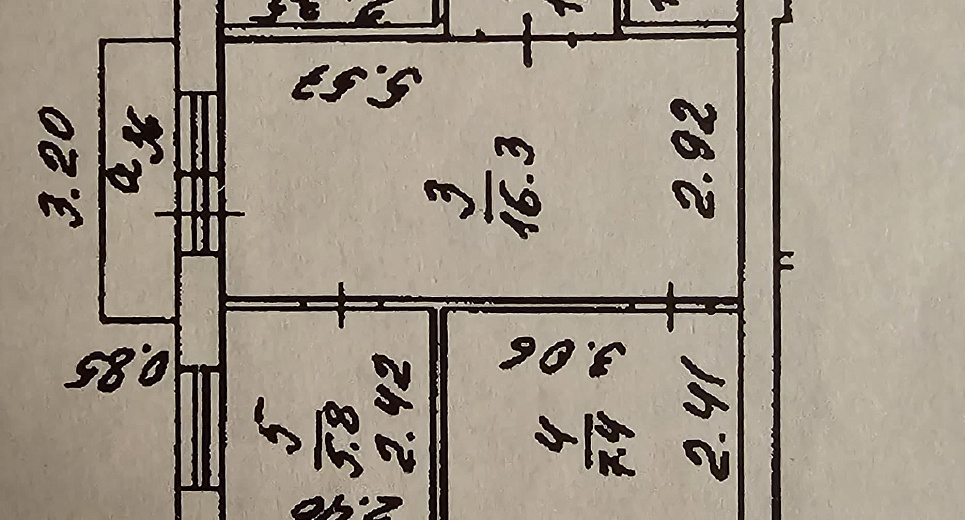 5.57
3.20
а
2.92
3
16.3
0.85
3.06
5
5.8
2.42
4
7.4
2.41
2.40